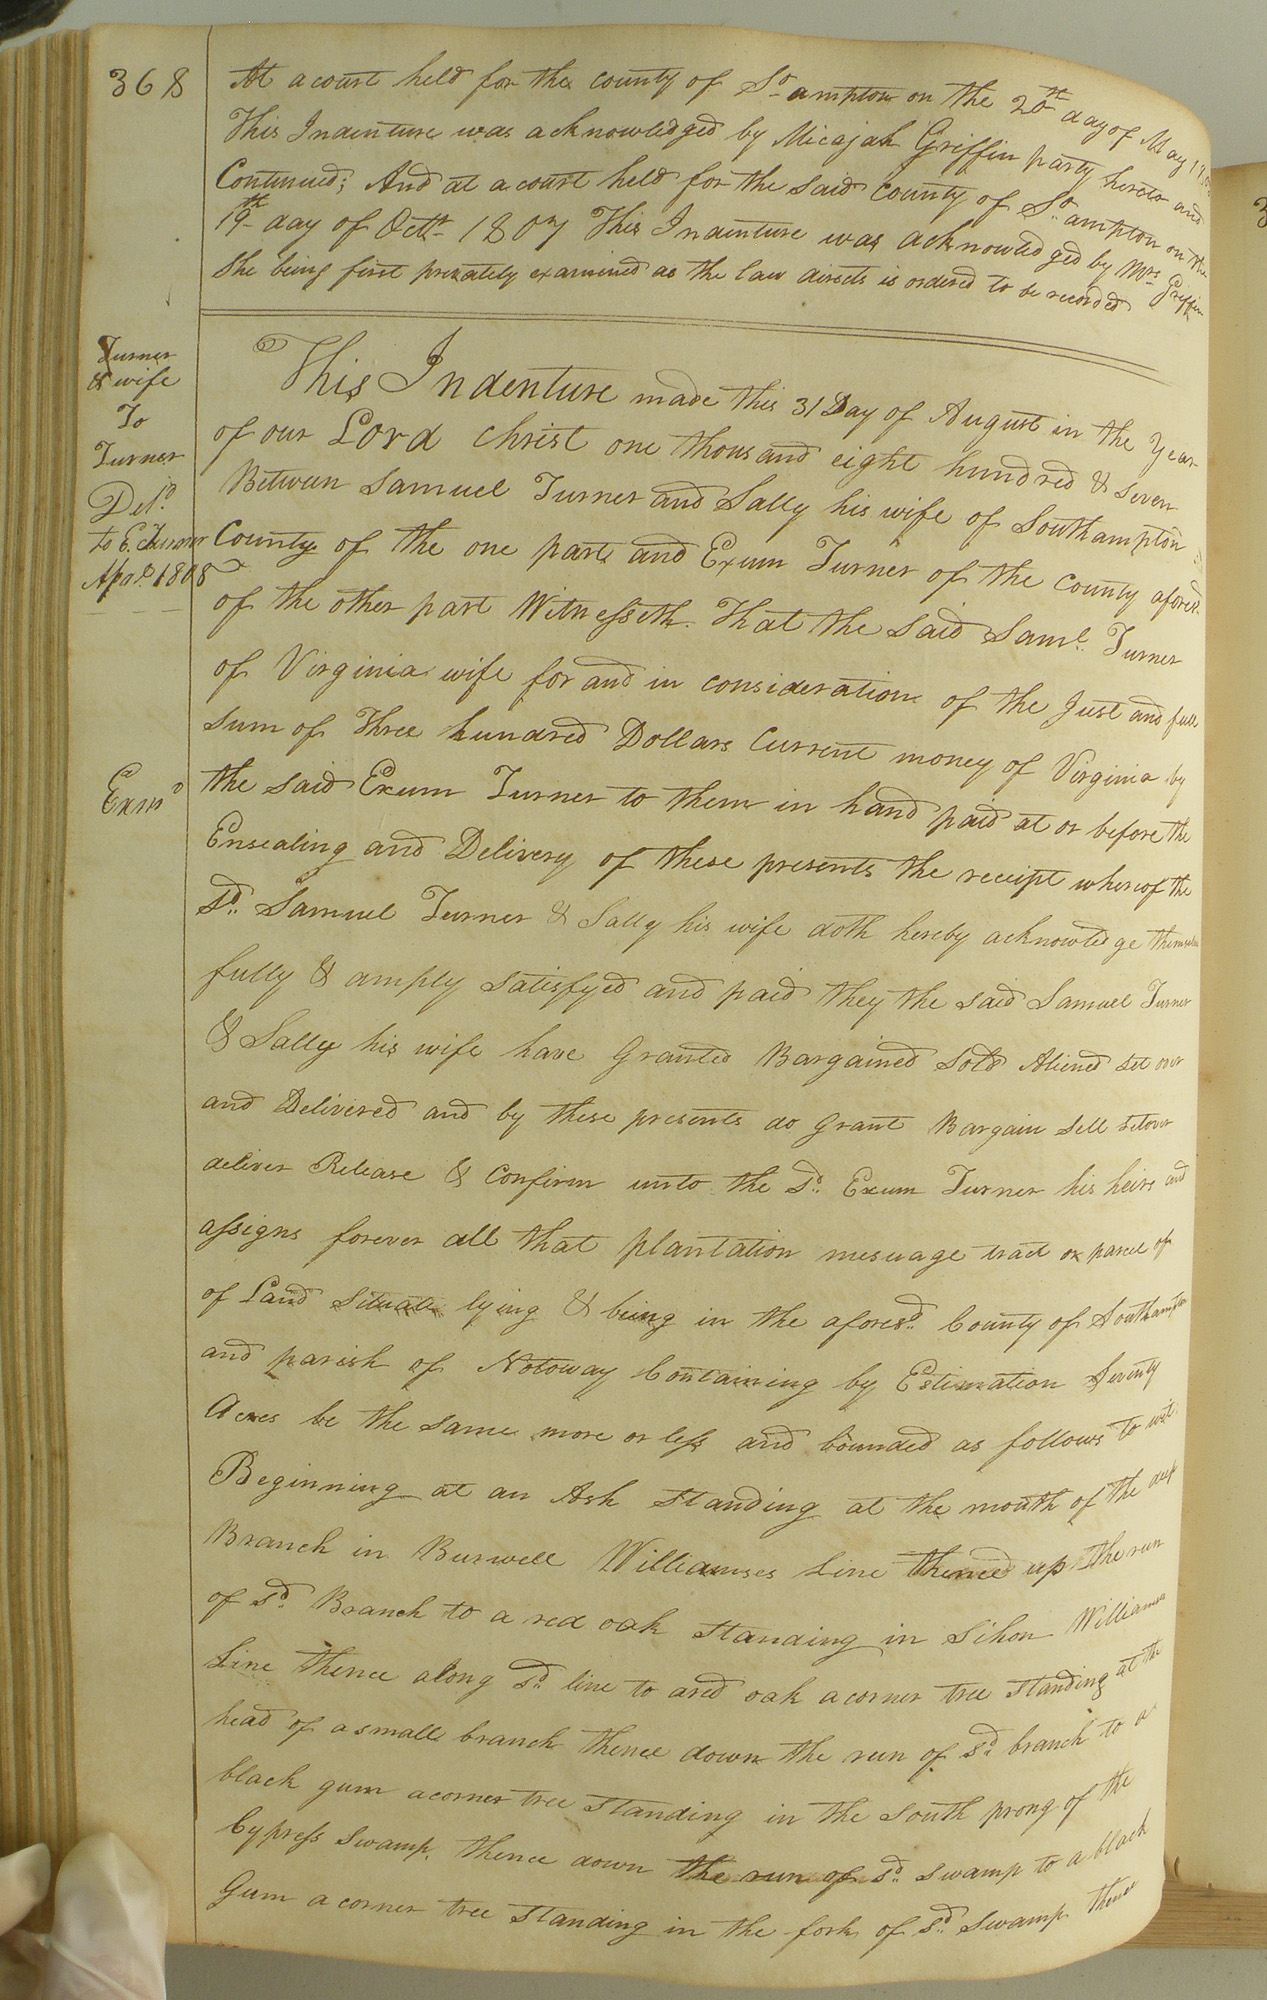 368
At a court held for the county of So. ampton on the 20th day of May
This Indenture was acknowledged by Micajah Griffin party hereto and
Continued; And at a court held for the said county of So. ampton on the
19th day of Octr. 1807 This Indenture was acknowledged by Mrs. Griffin
She being first privately examined as the law directs is ordered to be recorded
Turner
& wife
To
Turner
Deld.
to E. Turner
Aprl. 1808
This Indenture made this 31 Day of August in the Year
of our Lord Christ one thousand eight hundred & seven
Between Samuel Turner and Sally his wife of Southampton
County of the one part and Exum Turner of the county aforesd.
of the other part Witnesseth. That the said Saml. Turner
of Virginia wife for and in consideration of the Just and full
sum of Three hundred Dollars Current money of Virginia by
Examd
the said Exum Turner to them in hand paid at or before the
Ensealing and Delivery of these presents the receipt whereof the
sd. Samuel Turner & Sally his wife doth hereby acknowledge themselves
fully & amply satisfyed and paid they the said Samuel Turner
& Sally his wife have Granted Bargained Sold Aliened set over
and Delivered and by these presents do Grant Bargain Sell setover
deliver Release & Confirm unto the sd. Exum Turner his heirs and
assigns forever all that plantation mesuage tract or parcel of
of Land Situate lying & being in the aforesd. County of Southampton
and parish of Notoway Containing by Estimation Seventy
Acres be the same more or less and bounded as follows to wit.
Beginning at an Ash Standing at the mouth of the deep
Branch in Burwell Williamses Line thence up the run
of sd. Branch to a red oak standing in Sihon Williams
Line thence along sd. line to a red oak a corner tree standing at the
head of a small branch thence down the run of sd. branch to a
black gum a corner tree standing in the south prong of the
Cypress Swamp. thence down the run of sd. swamp to a black
Gum a corner tree standing in the fork of sd. swamp thence